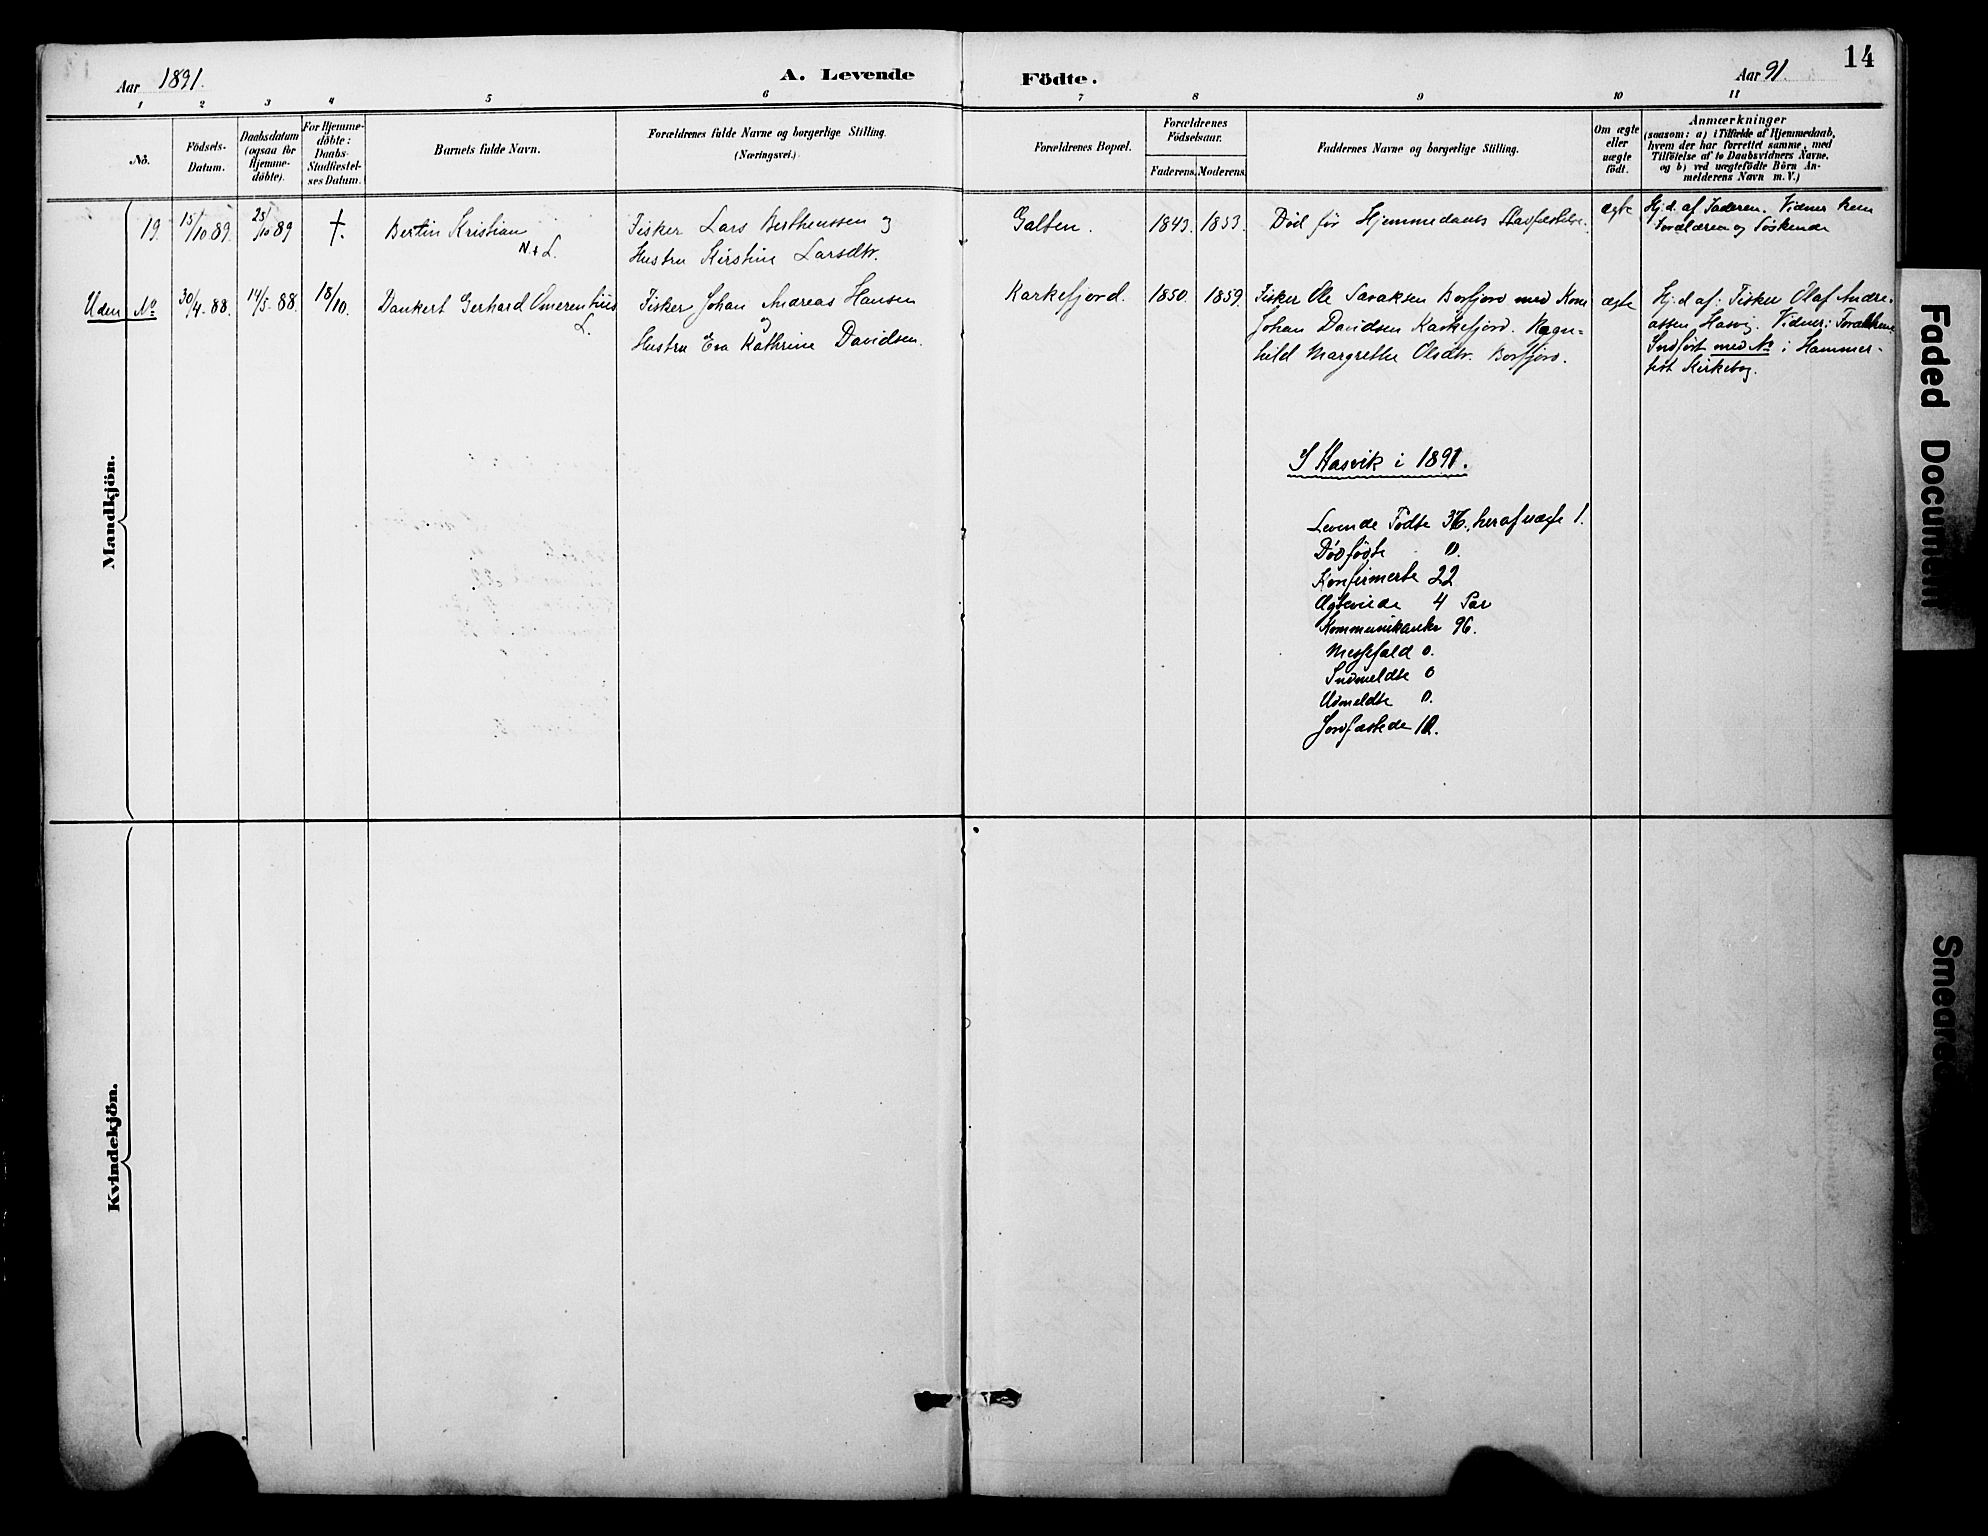 Aar 1891.
A. Levende Födte.
Aar 91
14
1 2 3 4 5 6 7 8 9 10 11
No.
Födsels-
Datum.
Daabsdatum
(ogsaa for
Hjemme-
döbte).
For Hjemme-
döbte:
Daabs-
Stadfæstel-
ses Datum.
Barnets fulde Navn.
Forældrenes fulde Navne og borgerlige Stilling.
(Næringsvei.)
Forældrenes Bopæl.
Forældrenes
Födselsaar.
Faderens. Moderens.
Faddernes Navne og borgerlige Stilling.
Om ægte
eller
uægte
födt.
Anmærkninger
(saasom: a) i Tilfælde af Hjemmedaab,
hvem der har forrettet samme, med
Tilföielse af to Daabsvidners Navne,
og b) ved uægtefödte Börn An-
melderens Navn m. V.)
Mandkjön.
19. 15/10 89. 25/10 89 †. Bertin Kristian
N. & L.
Fisker Lars Berthenssen og
Hustru Kirstine Larsdtr.
Galten. 1843. 1853.
Död för Hjemmedaabs Stadfæstelse.
ægte
Hj.d. af Faderen. Vidner kun
Forældrene og Söskende
Uden No 30/4. 88. 14/5. 88 18/10. Dankert Gerhard Omerentius
L.
Fisker Johan Andreas Hansen
og
Hustru Eva Kathrine Davidsen.
Karkefjord. 1850. 1859.
Fisker Ole Isaksen Borfjord med Kone
Johan Davidsen Karkefjord. Ragn-
hild Margrethe Olsdtr. Borfjord.
ægte
Hj.d af: Fisker Olaf Andre-
assen Hasvig. Vidner: Forældrene
Indfört med No i Hammer-
fest Kirkebog.
I Hasvik i 1891.
Levende Födte 36, heraf uægte 1.
Dödfödte 0.
Konfirmerte 22
Ægteviede 4 Par
Kommunikanter 96.
Messefald 0.
Indmeldte 0
Udmeldte 0.
Jordfæstede 10.
Kvindekjön.
Faded Document
Smeared